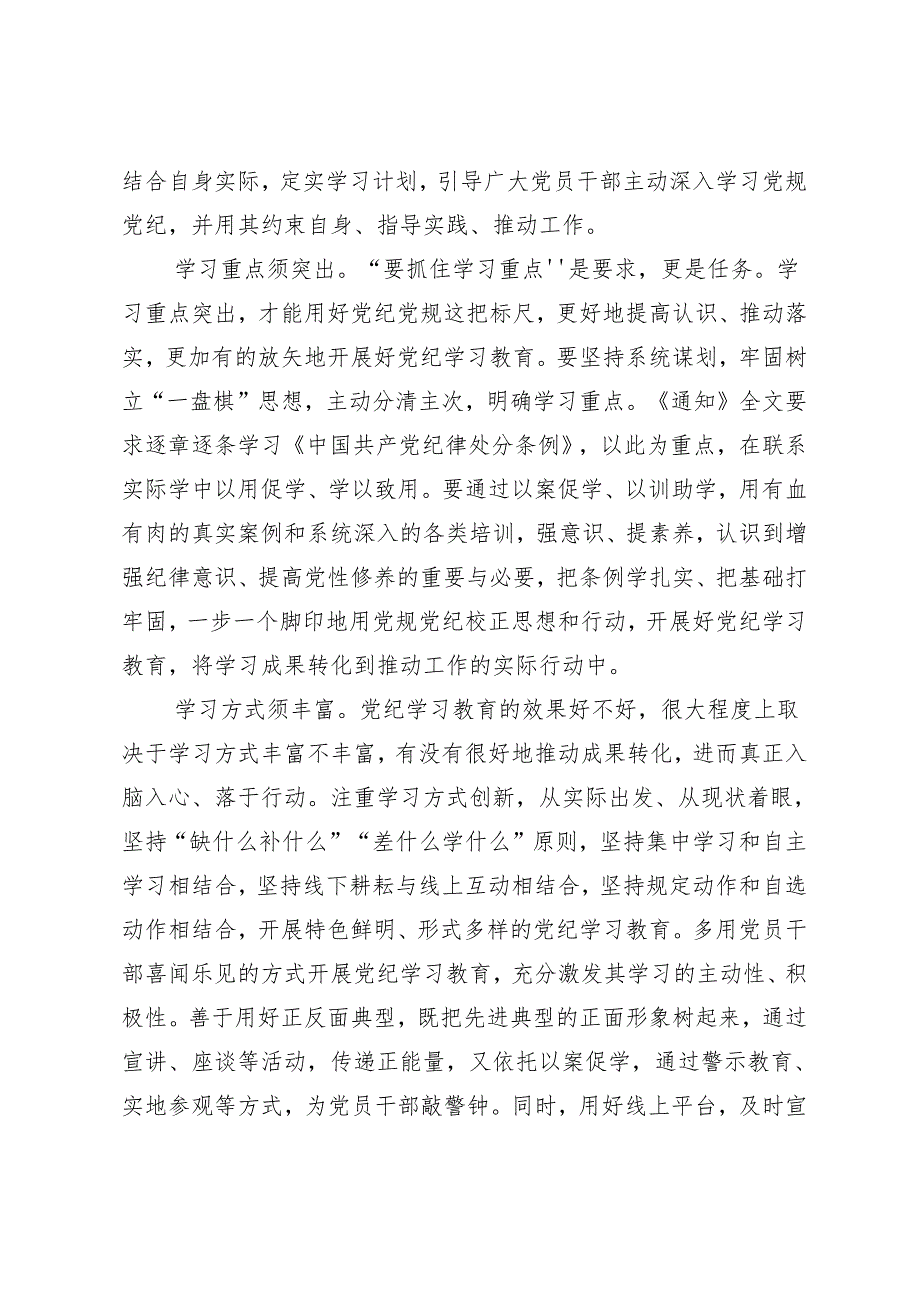 结合自身实际，定实学习计划，引导广大党员干部主动深入学习党规
党纪，并用其约束自身、指导实践、推动工作。
学习重点须突出。“要抓住学习重点''是要求，更是任务。学
习重点突出，才能用好党纪党规这把标尺，更好地提高认识、推动落
实，更加有的放矢地开展好党纪学习教育。要坚持系统谋划，牢固树
立“一盘棋”思想，主动分清主次，明确学习重点。《通知》全文要
求逐章逐条学习《中国共产党纪律处分条例》，以此为重点，在联系
实际学中以用促学、学以致用。要通过以案促学、以训助学，用有血
有肉的真实案例和系统深入的各类培训，强意识、提素养，认识到增
强纪律意识、提高党性修养的重要与必要，把条例学扎实、把基础打
牢固，一步一个脚印地用党规党纪校正思想和行动，开展好党纪学习
教育，将学习成果转化到推动工作的实际行动中。
学习方式须丰富。党纪学习教育的效果好不好，很大程度上取
决于学习方式丰富不丰富，有没有很好地推动成果转化，进而真正入
脑入心、落于行动。注重学习方式创新，从实际出发、从现状着眼，
坚持“缺什么补什么”“差什么学什么”原则，坚持集中学习和自主
学习相结合，坚持线下耕耘与线上互动相结合，坚持规定动作和自选
动作相结合，开展特色鲜明、形式多样的党纪学习教育。多用党员干
部喜闻乐见的方式开展党纪学习教育，充分激发其学习的主动性、积
极性。善于用好正反面典型，既把先进典型的正面形象树起来，通过
宣讲、座谈等活动，传递正能量，又依托以案促学，通过警示教育、
实地参观等方式，为党员干部敲警钟。同时，用好线上平台，及时宣